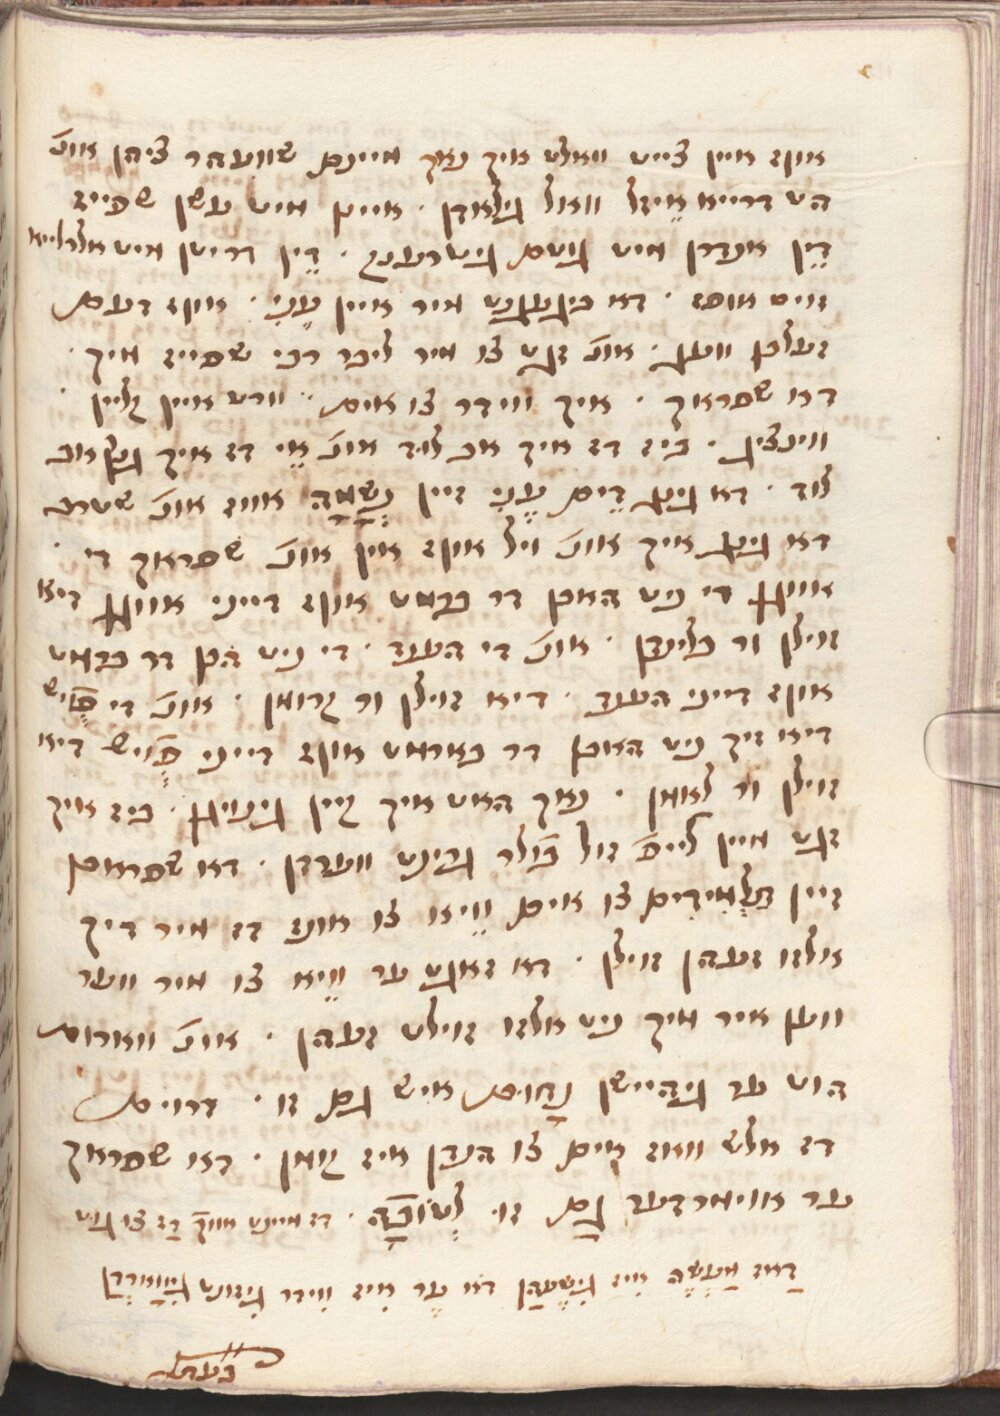 אונ' איין צייט וואלט איך נאך מיינם שוועהר ציהן אונ'
הט דרייא אֵיזל וואול גילאדן · איינן מיט עשן שפייז
דֵין אנדרן מיט גוטם גיטרענק · דֵין דריטן מיט אלרלייא
דא ביגעגנט מיר איין עָנִי · אונ' דעם
זעלבן וועג · אונ' זגט צו מיר ליבר רבי שפייז מיך ·
דא שפראך · איך ווידר צו אים · ווארט איין קליין ·
ווינציג · ביז דז איך אב לוד אונ' אֵי דז איך גנץ אב
לוד · דא גינג דֵים עָנִי זיין נְשָׁמָה אויז אונ' שטרב
דא גינג איך אונ' ויל אויף אין אונ' שפראך די ·
אויגן די ניט האבן דר ברמט אויף דייני אויגן דיא
זוילן ור בלינדן · אונ' די הענד · די ניט הבן דר ברמט
אויף דייני הענד · דיא זוילן ור קרומן · אונ' די פֿויש
דיא זיך ניט האבן דר בארמט אויף דייני פֿויש דיא
זוילן ור לאמן · נאך האט מיך קיין גינויגן · ביז איך
זגט מיין לייב זול בולר גרינט ווערדן · דא שפראכן
זיין תַּלְמִידִים צו אים וֵויא צו אונז דז מיר דיך
אלזו זעהן זוילן · דא זאגט ער וֵויא צו מיר ווער
ווען איר מיך ניט אלזו זוילט זעהן · אונ' ווארום
הוט ער גיהיישן נַחוּם איש גם זו · דרוים
דז אלש וואז אים צו הנדן איז קומן · דא שפראך
ער אוימרדער גַם זוּ לְטוֹבָה · דז מיינט אויך דַז צו גוט
דַאז מַעֲשֶׂה איז גִישֶׁעהַן דֹא עֶר איז וִוידר גִיזונט גִיוָוארְדַן